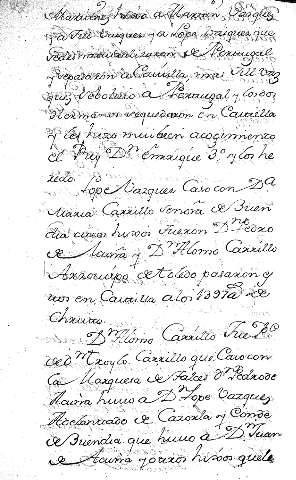 Martinez huvo a Martin Vazquez
y a Gill Vazquez y a Lope Vazquez que
de Portugal
y a Castilla, mas Gill Vaz
quez se bolvio a Portugal y los dos
Hermanos quedaron en Castilla
y les hizo mui buen acogimiento
el Rey Dn. Enrrique 3º. y los he
redo.
Lope Vazquez Caso con Da
Maria Carrillo Señora de Buen
dia cuios hixos fueron Dn. Pedro
de Acuña y Dn Alonso Carrillo
Arzovispo de toledo pasaron
en Castilla a los 1397 as de
Christo.
Dn Alonso Carrillo fue
de Dn troylo Carrillo que Caso con
la Marquesa de Falces Dn. Pedro de
Acuña huvo a Dn Lope Vazquez
Adelantado de Cazorla y Conde
de Buendia que huvo a Dn Juan
de Acuña y otros hixos que le